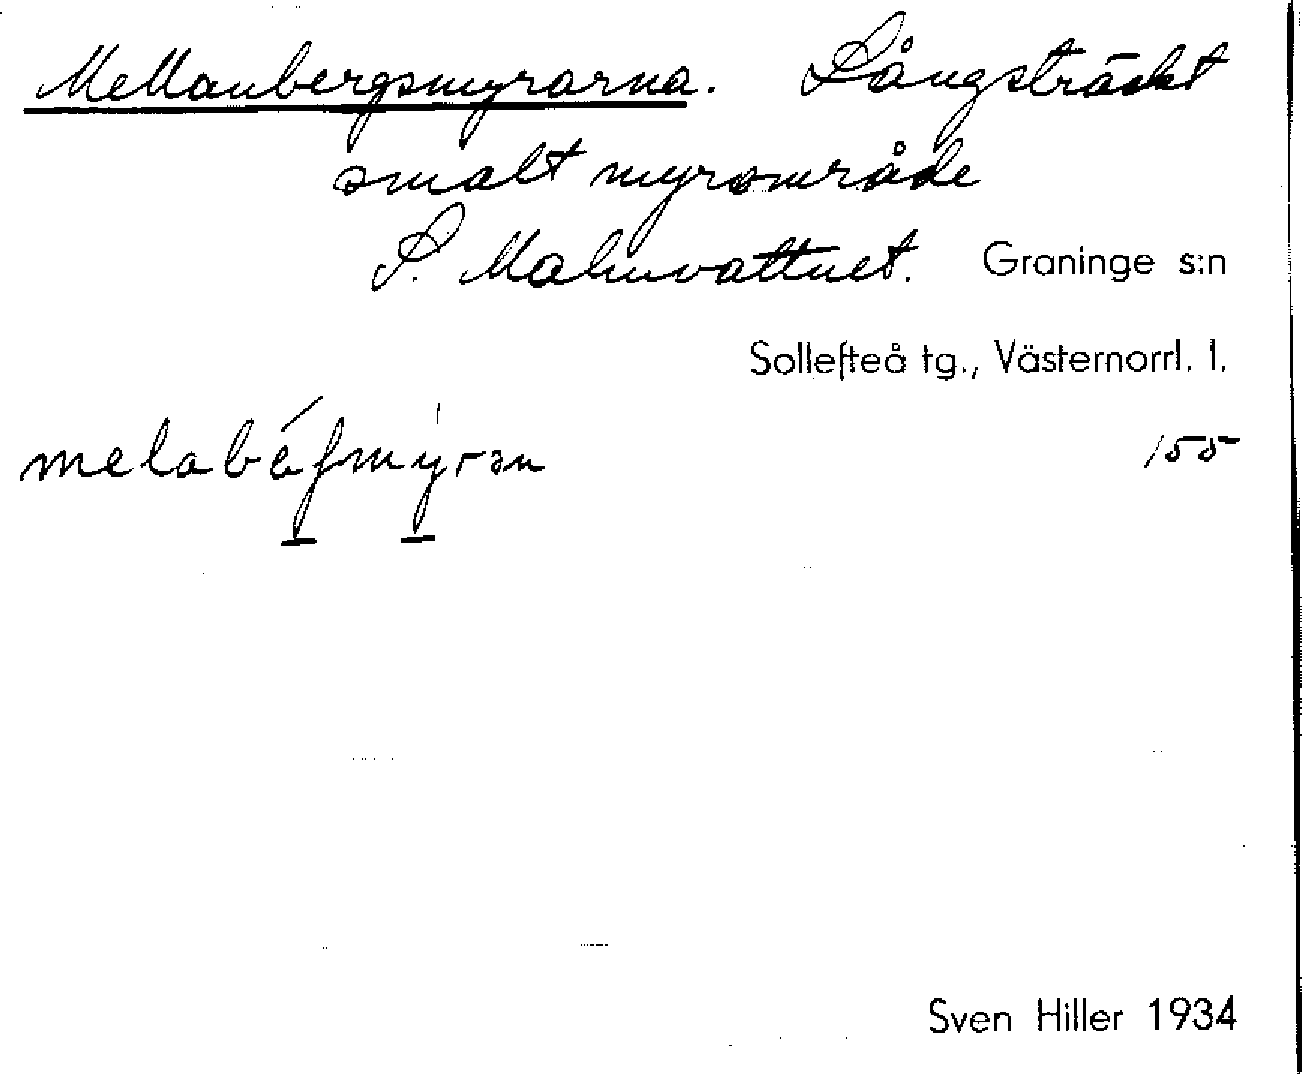 Mellanbergsmyrarna. Långsträckt
smalt myrområde
S. Malmvattnet. Graninge s:n
Sollefteå tg., Västernorrl. l.
155
Sven Hiller 1934